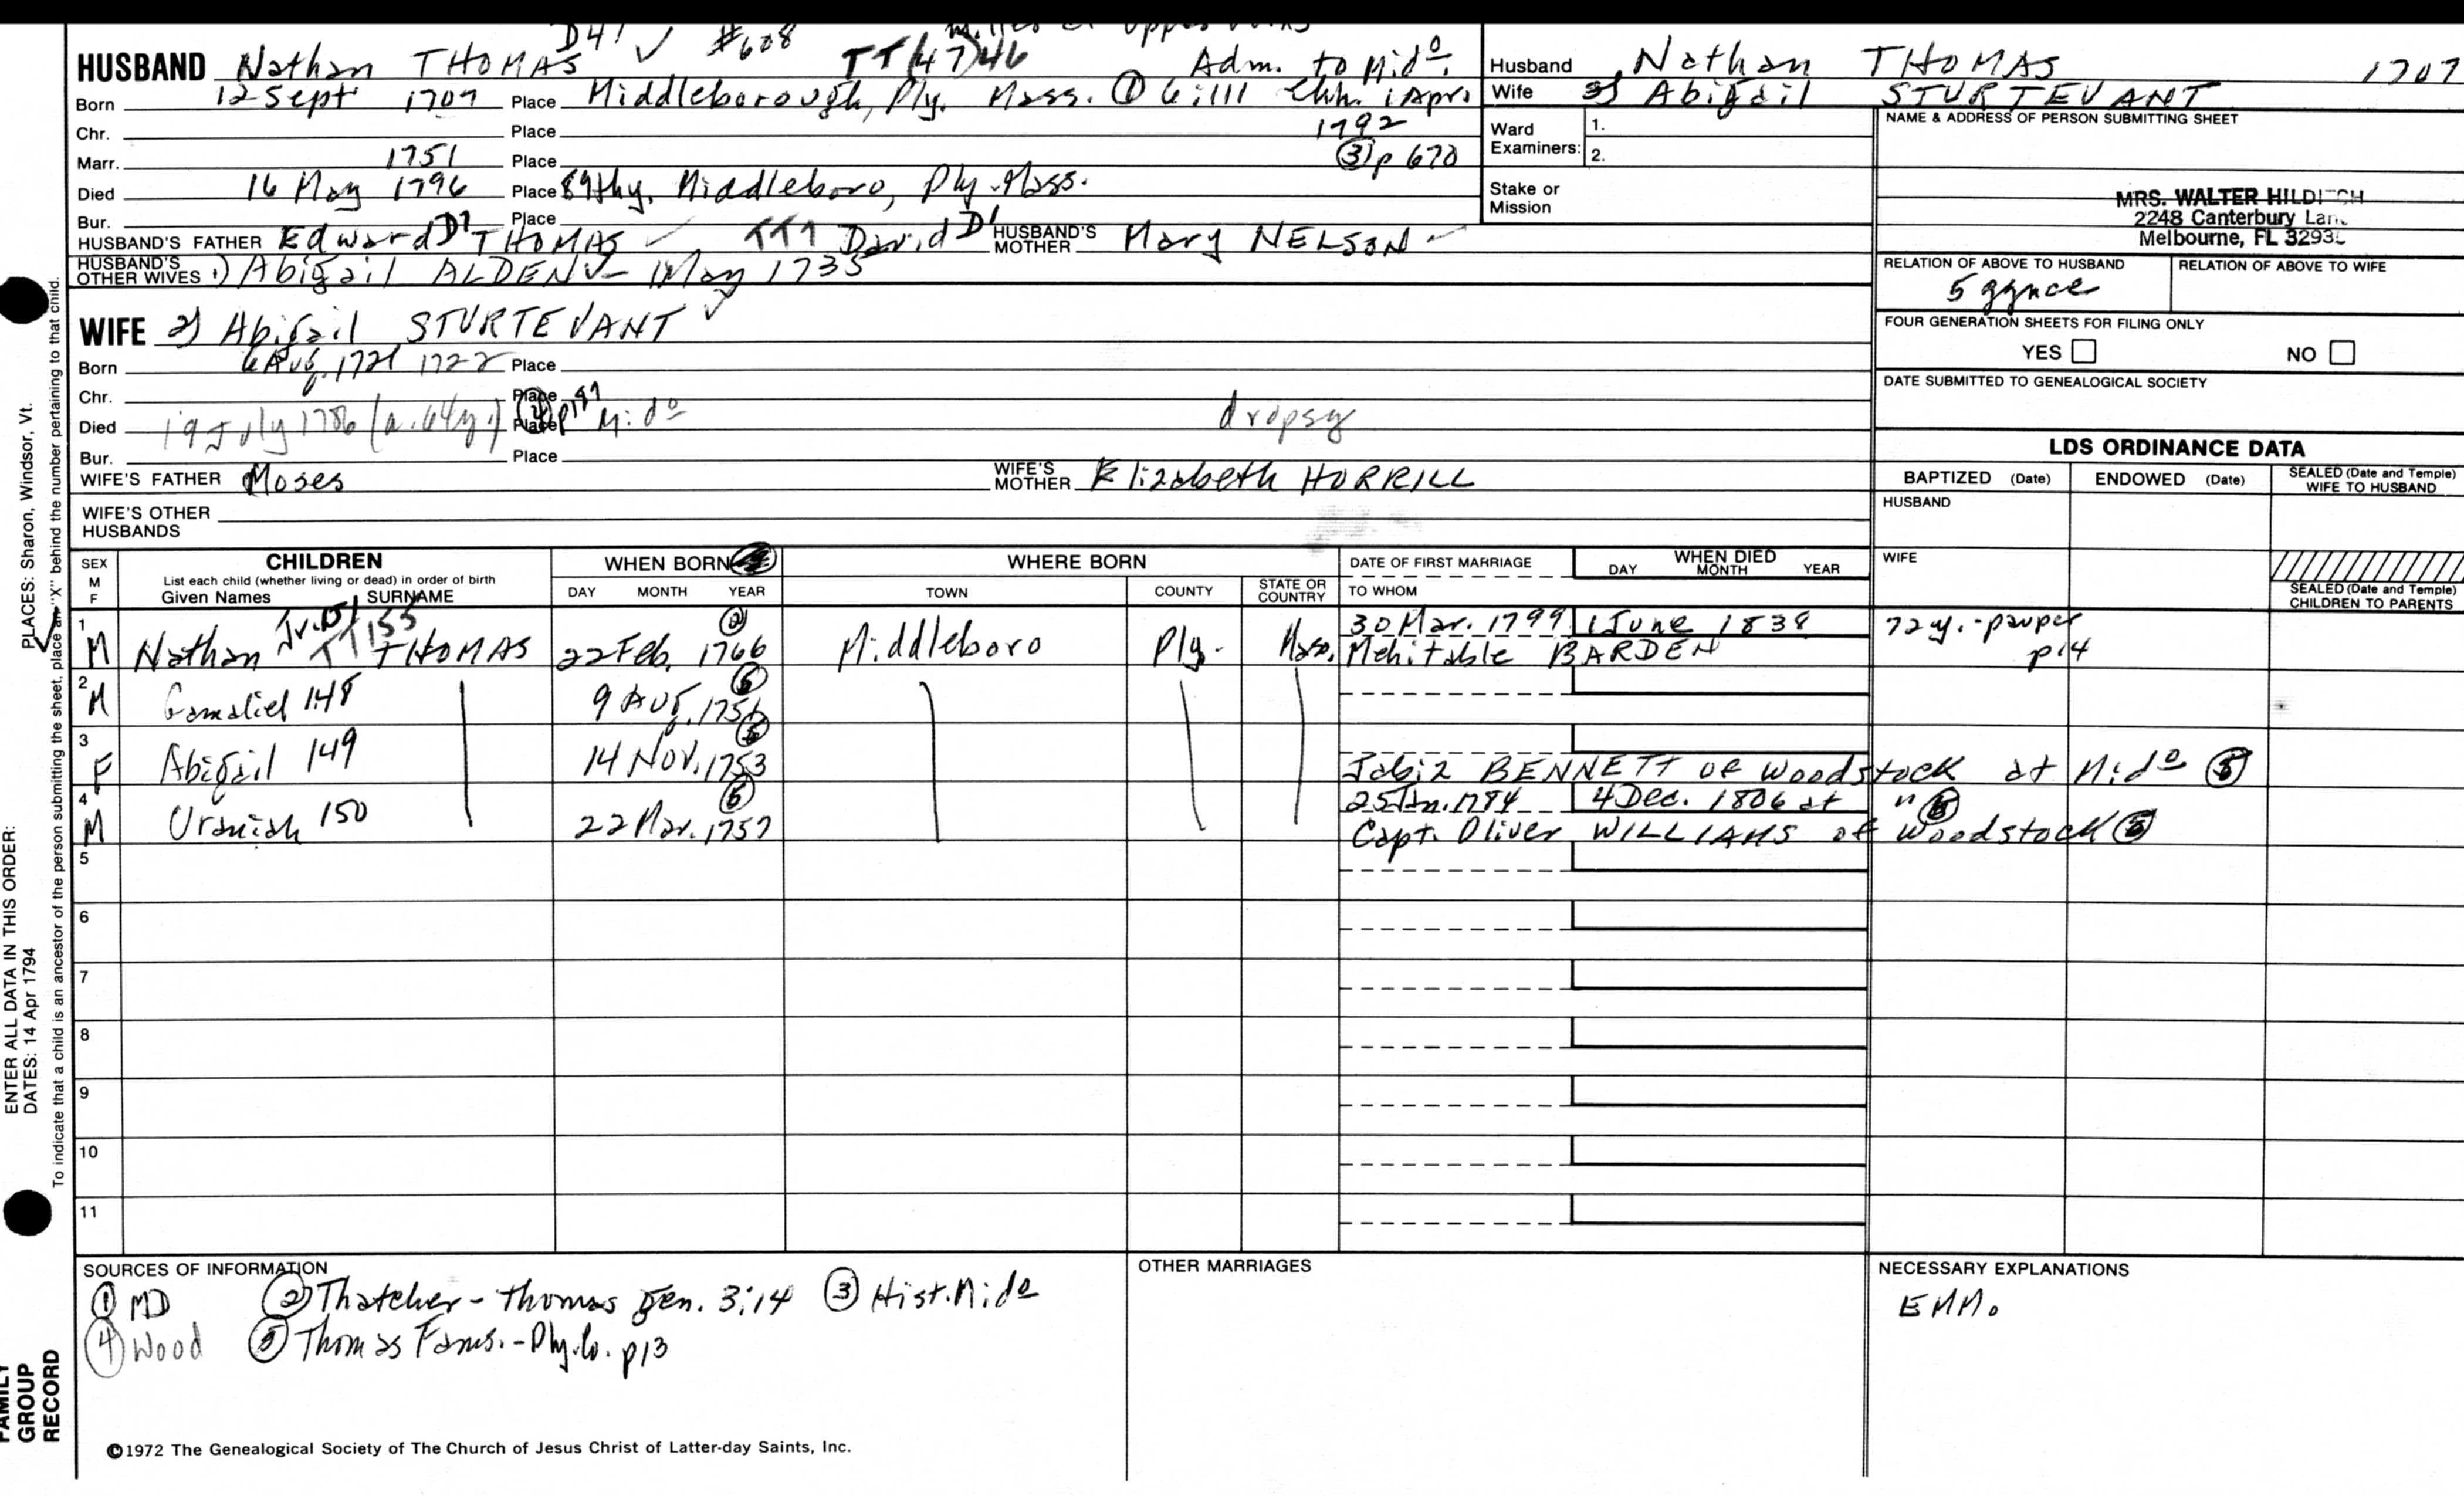 D41 ✓ #608
HUSBAND Nathan THOMAS TT(47)46 Adm. to Mido.
Born 12 Sept 1707 Place Middleborough, Ply. Mass. ① 6:111 Chh. 1 Apr.
Chr. Place 1792
Marr. 1751 Place ③ p 670
Died 16 May 1796 Place 89thy, Middleboro, Ply. Mass.
Bur. Place
HUSBAND'S FATHER Edward D7 THOMAS TT1 David D1 HUSBAND'S MOTHER Mary NELSON
HUSBAND'S OTHER WIVES 1) Abigail ALDEN May 1735
WIFE 2) Abigail STURTEVANT ✓
Born 6 Aug. 1721 1722 Place
Chr. Place
Died 19 July 1786 (a. 64y.) ④ p189 Place Mido dropsy
Bur. Place
WIFE'S FATHER Moses WIFE'S MOTHER Elizabeth HORRILL
WIFE'S OTHER HUSBANDS
Husband Nathan THOMAS 1707
Wife 2) Abigail STURTEVANT
Ward Examiners: 1.
2.
Stake or Mission
NAME & ADDRESS OF PERSON SUBMITTING SHEET
MRS. WALTER HILDITCH
2248 Canterbury Lane
Melbourne, FL 3293
RELATION OF ABOVE TO HUSBAND RELATION OF ABOVE TO WIFE
5 ggnce
FOUR GENERATION SHEETS FOR FILING ONLY
YES NO
DATE SUBMITTED TO GENEALOGICAL SOCIETY
LDS ORDINANCE DATA
BAPTIZED (Date) ENDOWED (Date) SEALED (Date and Temple) WIFE TO HUSBAND
HUSBAND
WIFE
SEALED (Date and Temple) CHILDREN TO PARENTS
SEX M F CHILDREN WHEN BORN WHERE BORN DATE OF FIRST MARRIAGE WHEN DIED
List each child (whether living or dead) in order of birth
Given Names SURNAME DAY MONTH YEAR TOWN COUNTY STATE OR COUNTRY TO WHOM DAY MONTH YEAR
1 Jr. D1 TT155 ② 30 Mar. 1799 1 June 1838 72 y. - pauper
M Nathan THOMAS 22 Feb. 1766 Middleboro Ply. Mass. Mehitable BARDEN p14
2 ⑤
M Gamaliel 148 9 Aug. 1751
3 ⑤
F Abigail 149 14 Nov. 1753 Jabiz BENNETT of Woodstock at Mido ⑤
4 ⑤ 25 Jan. 1784 4 Dec. 1806 at " ⑤
M Uraniah 150 22 Mar. 1757 Capt. Oliver WILLIAMS of Woodstock ⑤
5
6
7
8
9
10
11
SOURCES OF INFORMATION
① MD ② Thatcher - Thomas gen. 3:14 ③ Hist. Mido
④ Wood ⑤ Thomas Fams. - Ply. Co. p13
OTHER MARRIAGES
NECESSARY EXPLANATIONS
EMMo
©1972 The Genealogical Society of The Church of Jesus Christ of Latter-day Saints, Inc.
FAMILY GROUP RECORD
ENTER ALL DATA IN THIS ORDER:
DATES: 14 Apr 1794
PLACES: Sharon, Windsor, Vt.
To indicate that a child is an ancestor of the person submitting the sheet, place an "X" behind the number pertaining to that child.